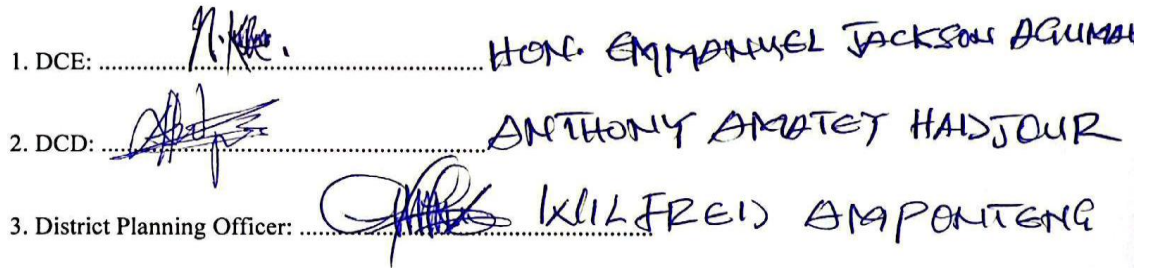 1. DCE: ............................ HON. EMMANUEL JACKSON AGUMAH
2. DCD: ............................ ANTHONY AMATEY HADJOUR
3. District Planning Officer: ............................ WILFRED AMPONTENG